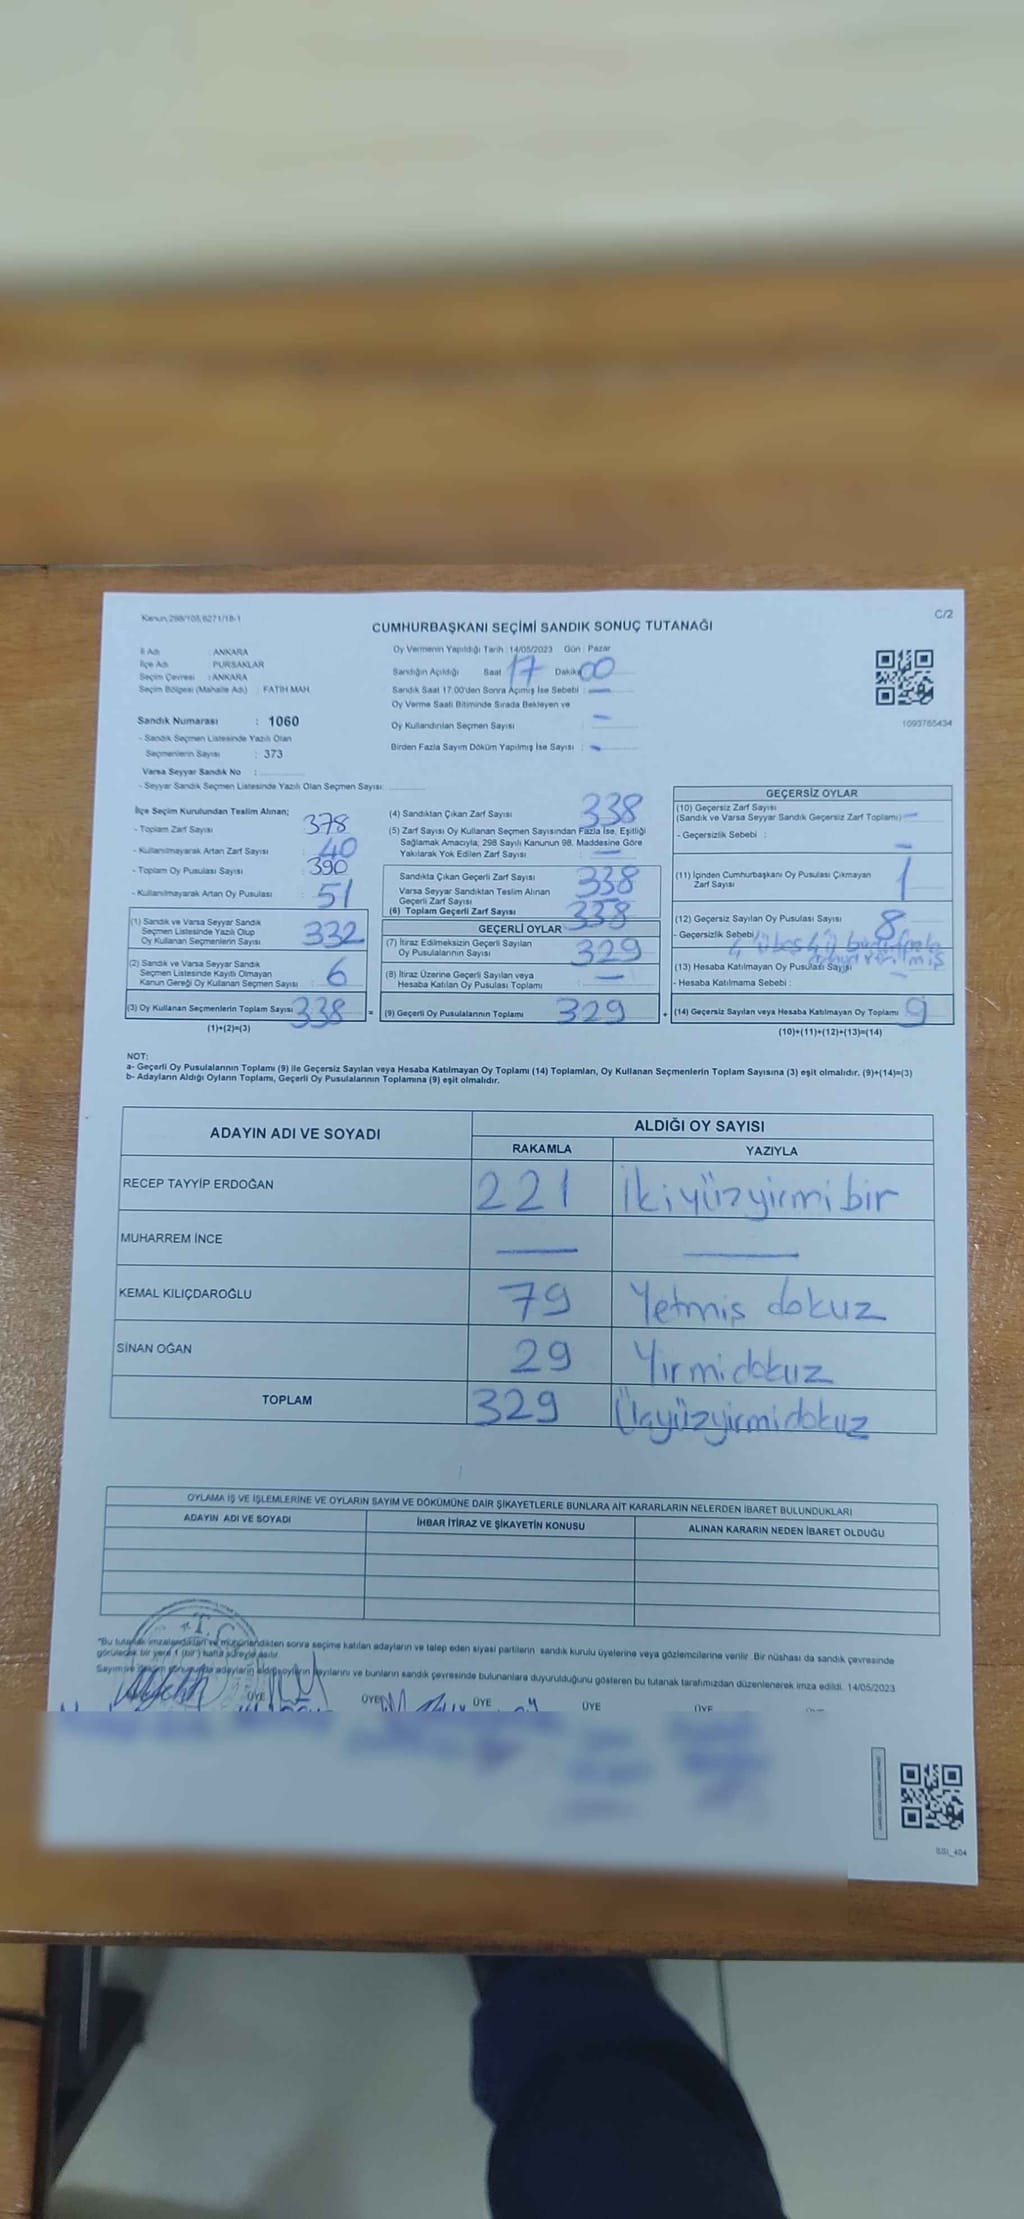 Kanun;298/105,6271/18-1
C/2
CUMHURBAŞKANI SEÇİMİ SANDIK SONUÇ TUTANAĞI
İl Adı : ANKARA
İlçe Adı : PURSAKLAR
Seçim Çevresi : ANKARA
Seçim Bölgesi (Mahalle Adı) : FATİH MAH.
Oy Vermenin Yapıldığı Tarih : 14/05/2023 Gün : Pazar
Sandığın Açıldığı Saat 17 Dakika 00
Sandık Saat 17.00'den Sonra Açılmış İse Sebebi : —
Oy Verme Saati Bitiminde Sırada Bekleyen ve
Oy Kullandırılan Seçmen Sayısı : —
Birden Fazla Sayım Döküm Yapılmış İse Sayısı : -
1093765434
Sandık Numarası : 1060
- Sandık Seçmen Listesinde Yazılı Olan
Seçmenlerin Sayısı : 373
Varsa Seyyar Sandık No :
- Seyyar Sandık Seçmen Listesinde Yazılı Olan Seçmen Sayısı:
İlçe Seçim Kurulundan Teslim Alınan;
- Toplam Zarf Sayısı : 378
- Kullanılmayarak Artan Zarf Sayısı : 40
- Toplam Oy Pusulası Sayısı : 390
- Kullanılmayarak Artan Oy Pusulası : 51
(1) Sandık ve Varsa Seyyar Sandık
Seçmen Listesinde Yazılı Olup
Oy Kullanan Seçmenlerin Sayısı : 332
(2) Sandık ve Varsa Seyyar Sandık
Seçmen Listesinde Kayıtlı Olmayan
Kanun Gereği Oy Kullanan Seçmen Sayısı : 6
(3) Oy Kullanan Seçmenlerin Toplam Sayısı 338
(1)+(2)=(3)
(4) Sandıktan Çıkan Zarf Sayısı : 338
(5) Zarf Sayısı Oy Kullanan Seçmen Sayısından Fazla İse, Eşitliği
Sağlamak Amacıyla; 298 Sayılı Kanunun 98. Maddesine Göre
Yakılarak Yok Edilen Zarf Sayısı : —
Sandıkta Çıkan Geçerli Zarf Sayısı : 338
Varsa Seyyar Sandıktan Teslim Alınan
Geçerli Zarf Sayısı
(6) Toplam Geçerli Zarf Sayısı 338
GEÇERLİ OYLAR
(7) İtiraz Edilmeksizin Geçerli Sayılan
Oy Pusulasının Sayısı : 329
(8) İtiraz Üzerine Geçerli Sayılan veya
Hesaba Katılan Oy Pusulası Toplamı : —
= (9) Geçerli Oy Pusulalarının Toplamı 329
GEÇERSİZ OYLAR
(10) Geçersiz Zarf Sayısı
(Sandık ve Varsa Seyyar Sandık Geçersiz Zarf Toplamı) —
- Geçersizlik Sebebi : —
(11) İçinden Cumhurbaşkanı Oy Pusulası Çıkmayan
Zarf Sayısı 1
(12) Geçersiz Sayılan Oy Pusulası Sayısı 8
- Geçersizlik Sebebi
(13) Hesaba Katılmayan Oy Pusulası Sayısı —
- Hesaba Katılmama Sebebi :
+ (14) Geçersiz Sayılan veya Hesaba Katılmayan Oy Toplamı 9
(10)+(11)+(12)+(13)=(14)
NOT:
a- Geçerli Oy Pusulalarının Toplamı (9) ile Geçersiz Sayılan veya Hesaba Katılmayan Oy Toplamı (14) Toplamları, Oy Kullanan Seçmenlerin Toplam Sayısına (3) eşit olmalıdır. (9)+(14)=(3)
b- Adayların Aldığı Oyların Toplamı, Geçerli Oy Pusulalarının Toplamına (9) eşit olmalıdır.
ADAYIN ADI VE SOYADI
ALDIĞI OY SAYISI
RAKAMLA YAZIYLA
RECEP TAYYİP ERDOĞAN 221 İkiyüzyirmibir
MUHARREM İNCE — —
KEMAL KILIÇDAROĞLU 79 Yetmiş dokuz
SİNAN OĞAN 29 Yirmidokuz
TOPLAM 329 Üçyüzyirmidokuz
OYLAMA İŞ VE İŞLEMLERİNE VE OYLARIN SAYIM VE DÖKÜMÜNE DAİR ŞİKAYETLERLE BUNLARA AİT KARARLARIN NELERDEN İBARET BULUNDUKLARI
ADAYIN ADI VE SOYADI İHBAR İTİRAZ VE ŞİKAYETİN KONUSU ALINAN KARARIN NEDEN İBARET OLDUĞU
T.C.
*Bu tutanak imzalandıktan ve mühürlendikten sonra seçime katılan adayların ve talep eden siyasi partilerin sandık kurulu üyelerine veya gözlemcilerine verilir. Bir nüshası da sandık çevresinde
görülecek bir yere 1 (bir) hafta süreyle asılır.
Sayım ve döküm sonucunda adayların aldığı oyların sayılarını ve bunların sandık çevresinde bulunanlara duyurulduğunu gösteren bu tutanak tarafımızdan düzenlenerek imza edildi. 14/05/2023
ÜYE ÜYE ÜYE ÜYE ÜYE